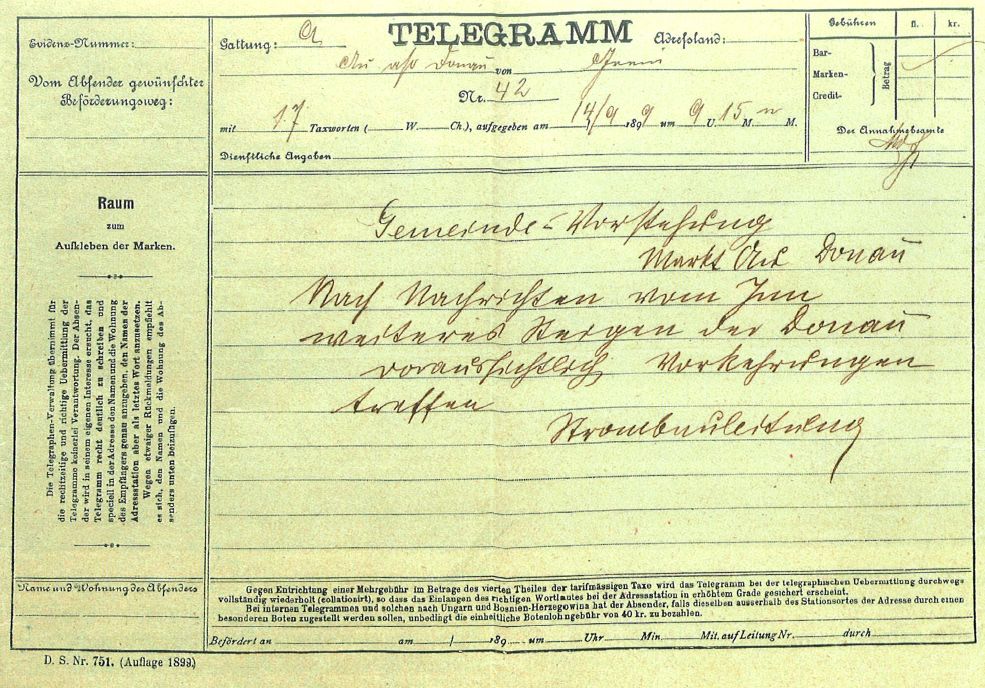 Evidenz-Nummer:
Vom Absender gewünschter
Beförderungsweg:
TELEGRAMM
Gattung:
Adreßland:
Au a/d Donau von
Nr. 42
mit 17 Taxworten ( W. Ch.), aufgegeben am 14/9 1899 um 9 U. 15 M. M.
Dienstliche Angaben
Gebühren fl. kr.
Bar-
Marken-
Credit-
Betrag
Der Annahmebeamte
Raum
zum
Aufkleben der Marken.
Die Telegraphen-Verwaltung übernimmt für
die rechtzeitige und richtige Uebermittlung der
Telegramme keinerlei Verantwortung. Der Absen-
der wird in seinem eigenen Interesse ersucht, das
Telegramm recht deutlich zu schreiben und
speciell in der Adresse den Namen und die Wohnung
des Empfängers genau anzugeben, den Namen der
Adressstation aber als letztes Wort anzusetzen.
Wegen etwaiger Rückmeldungen empfiehlt
es sich, den Namen und die Wohnung des Ab-
senders unten beizufügen.
Gemeinde-Vorstehung
Markt Au Donau
Nach Nachrichten vom Inn
weiteres Steigen der Donau
voraussichtlich Vorkehrungen
treffen
Strombauleitung
Name und Wohnung des Absenders
Gegen Entrichtung einer Mehrgebühr im Betrage des vierten Theiles der tarifmässigen Taxe wird das Telegramm bei der telegraphischen Uebermittlung durchwegs
vollständig wiederholt (collationirt), so dass das Einlangen des richtigen Wortlautes bei der Adressstation in erhöhtem Grade gesichert erscheint.
Bei internen Telegrammen und solchen nach Ungarn und Bosnien-Herzegowina hat der Absender, falls dieselben ausserhalb des Stationsortes der Adresse durch einen
besonderen Boten zugestellt werden sollen, unbedingt die einheitliche Botenlohngebühr von 40 kr. zu bezahlen.
Befördert an am / 189 um Uhr Min. Mit auf Leitung Nr. durch
D. S. Nr. 751. (Auflage 1899.)